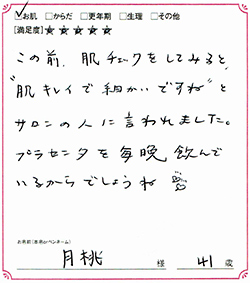 ✓お肌 □からだ □更年期 □生理 □その他
[満足度]★★★★★
この前、肌チェックをしてみると、
"肌キレイで細かいですね"と
サロンの人に言われました。
プラセンタを毎晩飲んで
いるからでしょうね
お名前(本名orペンネーム)
月桃 様 41 歳